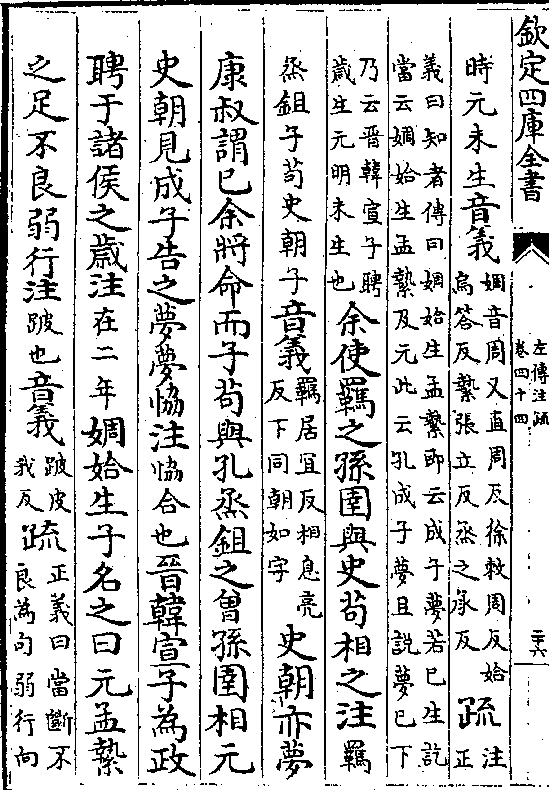 欽定四庫全書
左傳注疏
卷四十四
二十六
時元未生音義婤音周又直周反徐敕周反姶
烏答反縶張立反烝之承反疏注正
義曰知者傳曰婤姶生孟縶即云成子夢若已生訖
當云婤姶生孟縶及元此云孔成子夢且説夢已下
乃云晉韓宣子聘
歲生元明未生也余使羈之孫圉與史苟相之注羈
烝鉏子苟史朝子音義羈居宜反相息亮
反下同朝如字史朝亦夢
康叔謂已余將命而子苟與孔烝鉏之曾孫圉相元
史朝見成子告之夢夢恊注恊合也晉韓宣子為政
聘于諸侯之歲注在二年婤姶生子名之曰元孟縶
之足不良弱行注跛也音義跛皮
我反疏正義曰當斷不
良為句弱行向